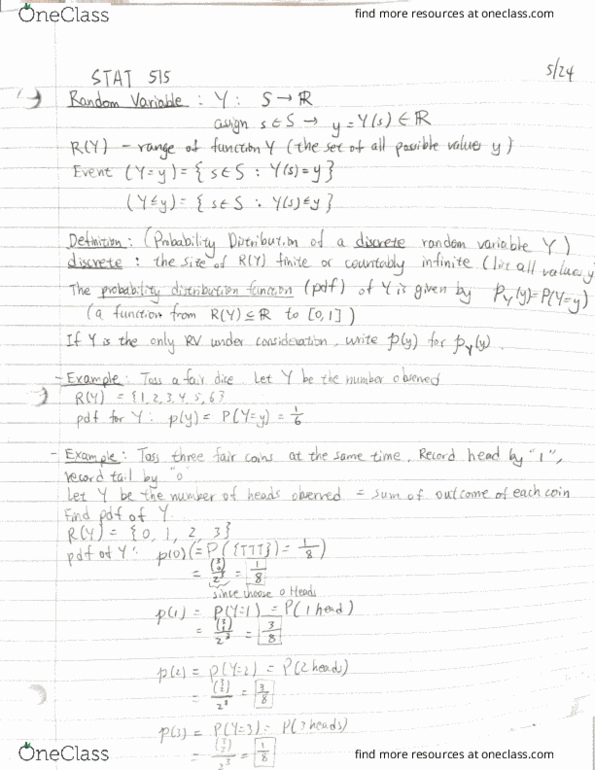 OneClass
find more resources at oneclass.com
STAT 515
5/24
Random Variable : Y : S → ℝ
assign s ∈ S → y = Y(s) ∈ ℝ
R(Y) - range of function Y (the set of all possible values y)
Event (Y=y) = { s ∈ S : Y(s) = y }
(Y≤y) = { s ∈ S : Y(s) ≤ y }
Definition : (Probability Distribution of a discrete random variable Y)
discrete : the size of R(Y) finite or countably infinite (list all values y
The probability distribution function (pdf) of Y is given by P_Y(y)=P(Y=y)
(a function from R(Y) ⊆ ℝ to [0,1])
If Y is the only RV under consideration, write p(y) for p_Y(y).
- Example : Toss a fair dice. Let Y be the number observed
R(Y) = {1,2,3,4,5,6}
pdf for Y : p(y) = P(Y=y) = 1/6
- Example : Toss three fair coins at the same time. Record head by "1",
record tail by "0"
Let Y be the number of heads observed = sum of outcome of each coin
Find pdf of Y.
R(Y) = {0, 1, 2, 3}
pdf of Y : p(0) (= P({TTT}) = 1/8)
= (3 0)/2³ = 1/8
since choose 0 Heads
p(1) = P(Y=1) = P(1 head)
= (3 1)/2³ = 3/8
p(2) = P(Y=2) = P(2 heads)
= (3 2)/2³ = 3/8
p(3) = P(Y=3) = P(3 heads)
= (3 3)/2³ = 1/8
OneClass
find more resources at oneclass.com